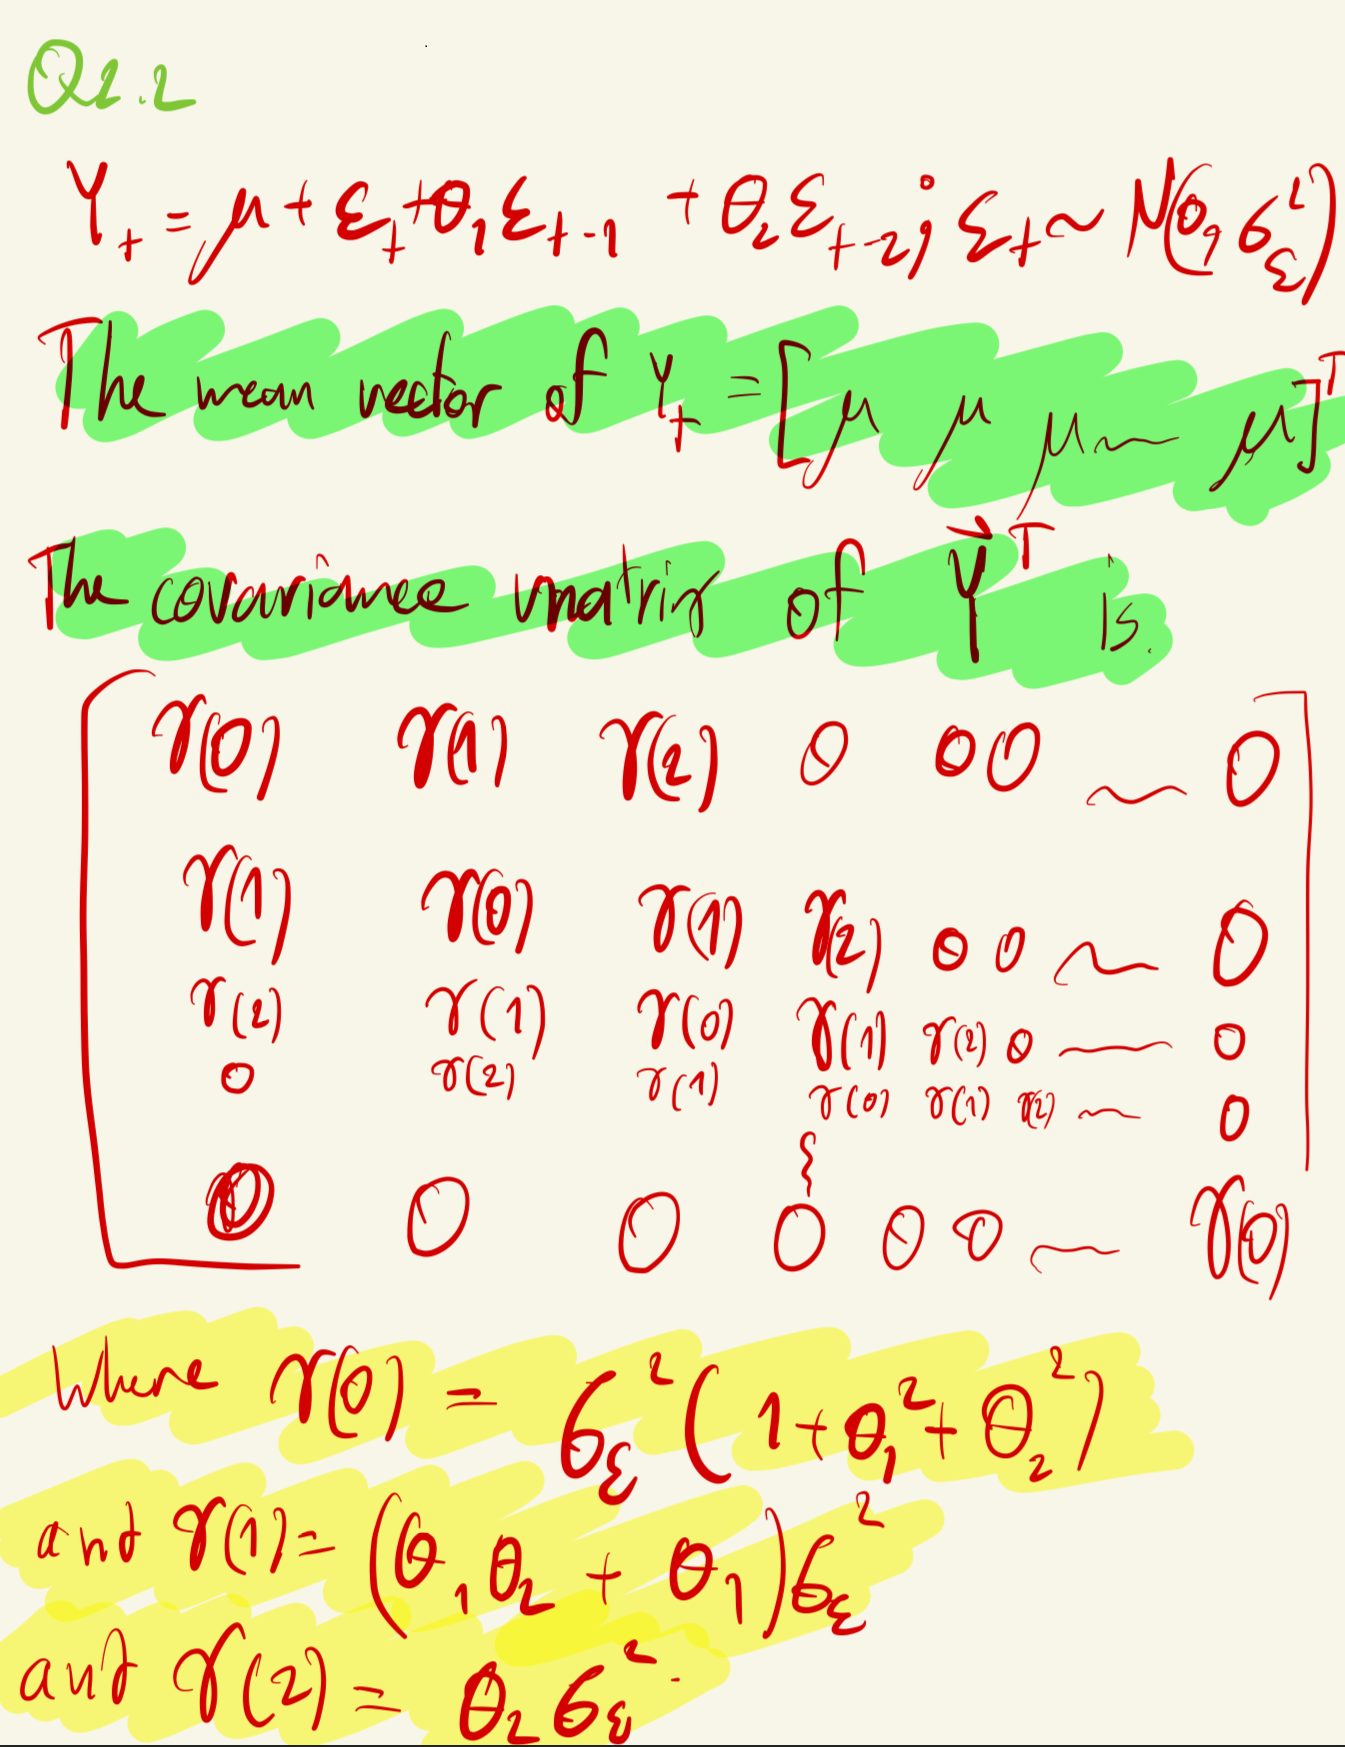 Q2.2
Y_t = μ + ε_t + θ_1 ε_{t-1} + θ_2 ε_{t-2} ; ε_t ~ N(0, σ_ε^2)
The mean vector of Y_t = [μ μ μ ~ μ]^T
The covariance matrix of Y⃗^T is.
γ(0) γ(1) γ(2) 0 0 0 ~ 0
γ(1) γ(0) γ(1) γ(2) 0 0 ~ 0
γ(2) γ(1) γ(0) γ(1) γ(2) 0 — 0
0 γ(2) γ(1) γ(0) γ(1) γ(2) — 0
0 0 0 0 0 0 — γ(0)
Where γ(0) = σ_ε^2 (1 + θ_1^2 + θ_2^2)
and γ(1) = (θ_1 θ_2 + θ_1) σ_ε^2
and γ(2) = θ_2 σ_ε^2.